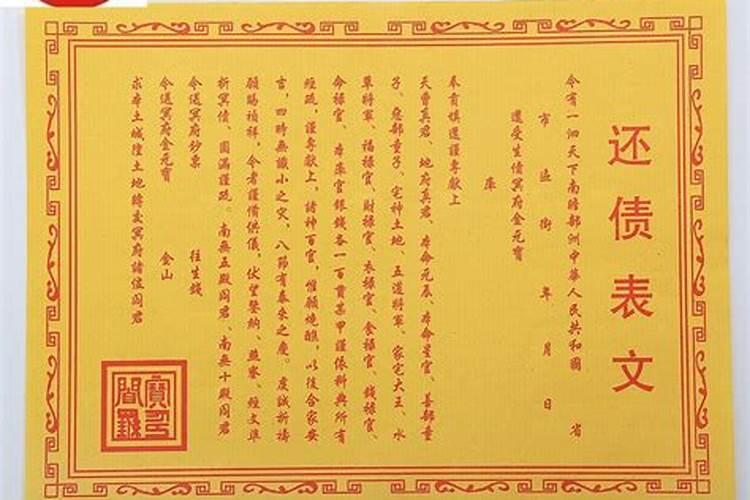 还债表文
今有一泗天下南瞻部洲中華人民共和國 省
市 區 街 年 月 日
還受生債冥府金元寶
庫
奉有填還謹專献上
天曹真君、地府真君、本命元辰、本命星官、善部童
子、惡部童子、宅神土地、五道將軍、家宅大王、水
草將軍、福禄官、財禄官、衣禄官、食禄官、錢禄官、
命禄官、本庫官銀錢各一百貫某甲謹依科典所有
經疏，謹專献上，諸神百官，惟願燒醮，以後合家安
言，四時無纖小之灾，八節有泰來之慶。虔誠祈禱
願賜禎祥，今者謹備供儀，伏望鑒納、燕寥、經文準
折冥債、圓滿謹疏。南無五殿阎君、南無十殿阎君
令送冥府鈔票 往生錢
令送冥府金元寶 金山
求本土城隍土地轉交冥府諸位阎君